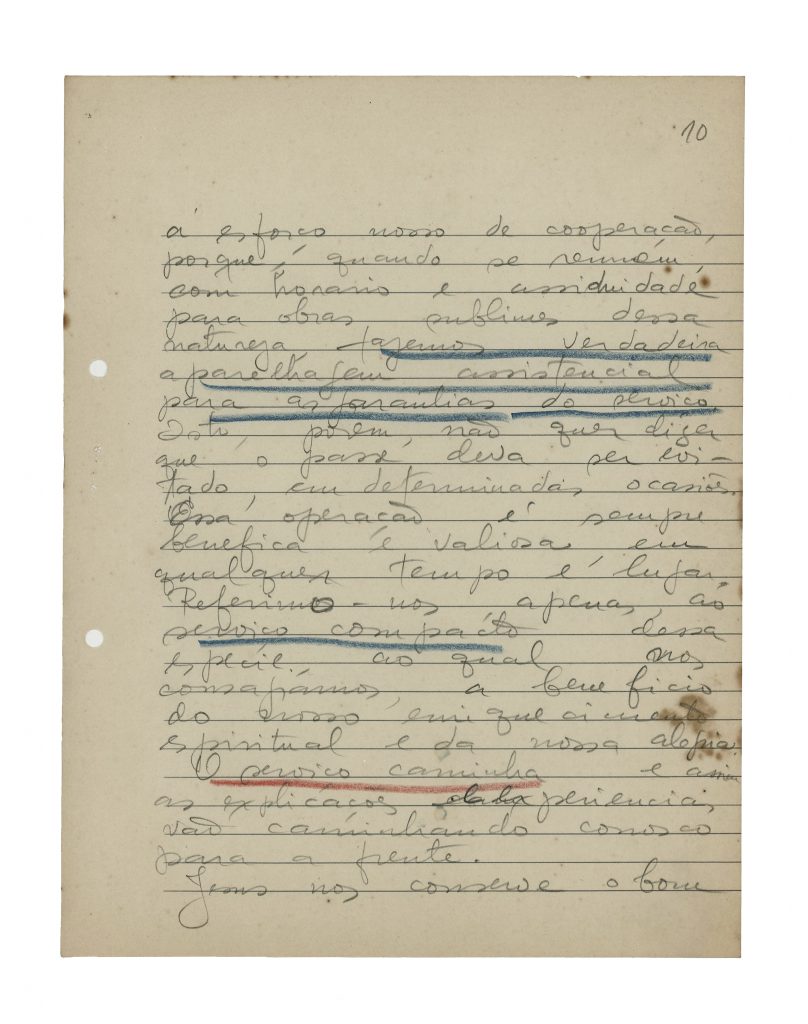 10
á esforço nosso de cooperação,
porque, quando se reuném,
com horario e assiduidade
para obras sublimes dessa
natureza, fazemos verdadeira
aparelhagem assistencial
para as garantias do serviço.
Isto, porém, não quer dizer
que o passe deva ser evi-
tado, em determinadas ocasiões.
Essa operação é sempre
benefica e valiosa em
qualquer tempo e lugar.
Referimo-nos apenas, ao
serviço compacto dessa
espécie, ao qual nos
consagrámos, a beneficio
do nosso enriquecimento
espiritual e da nossa alegria.
O serviço caminha e assim
as explicações periencias,
vão caminhando conosco
para a frente.
Jesus nos conserve o bom